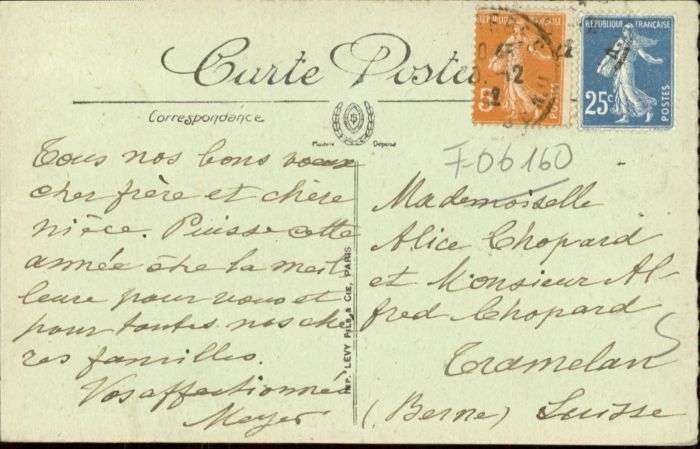 Carte Posta
Correspondance
Modèle Déposé
RÉPUBLIQUE FRANÇAISE
5
RÉPUBLIQUE FRANÇAISE
25c
POSTES
12
2
F-06160
Tous nos bons vœux
cher frère et chère
nièce. Puisse cette
année être la meil
leure pour vous et
pour toutes nos chè
res familles.
Vos affectionnés
Meyer
IMP. LEVY FILS & CIE, PARIS
Mademoiselle
Alice Chopard
et Monsieur Al-
fred Chopard
Tramelan
(Berne) Suisse